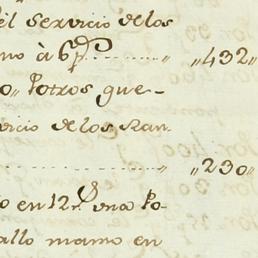 el Servicio de los
mo à 6 p.s ........ „432„
0„ Potros que-
vicio de los Ran-
........ „230„
o en 12 r.s una Po-
allo manso en